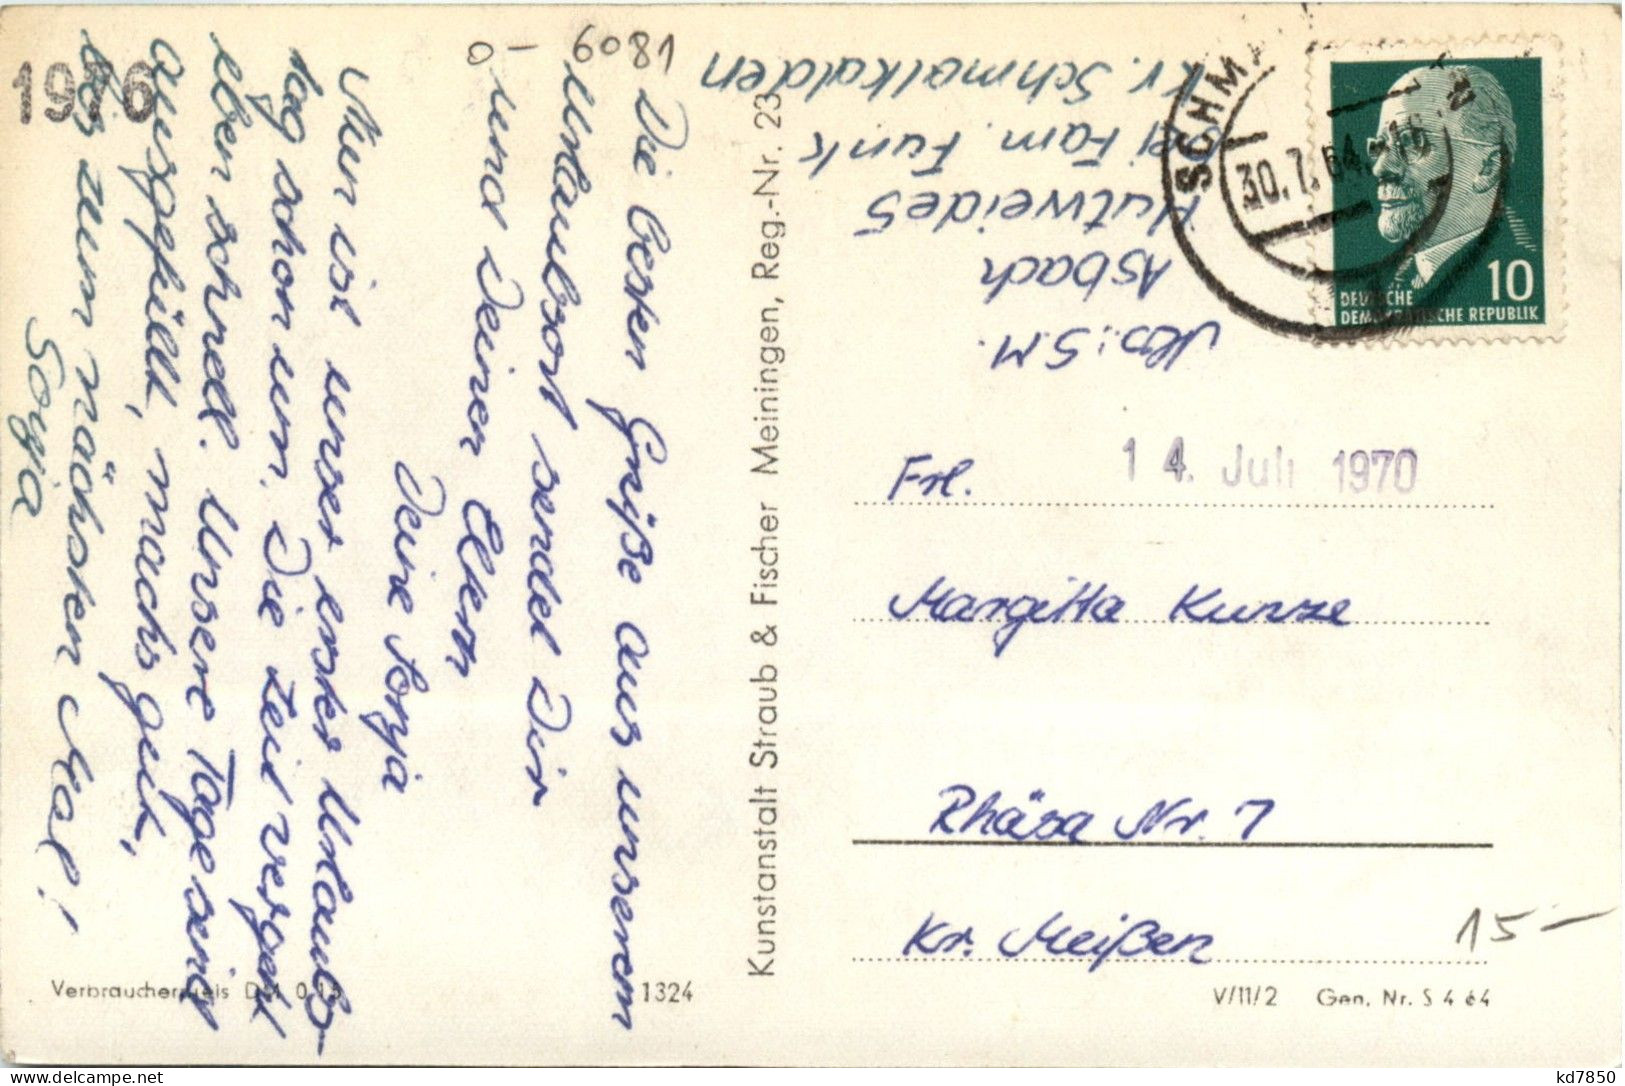 6081
Die besten Grüße aus unserem
Urlaubsort sendet Dir
und Deinen Eltern
Deine Sonja
Nun ist unser erster Urlaubs-
tag schon um. Die Zeit vergeht
eben schnell. Unsere Tage sind
ausgefüllt, machs gut,
bis zum nächsten Mal!
Sonja
1976
Kunstanstalt Straub & Fischer Meiningen, Reg.-Nr. 23
Abs: S.M.
Asbach
Hutweide 5
bei Fam. Funk
Kr. Schmalkalden
SCHM
30.7.64
10
DEUTSCHE
DEMOKRATISCHE REPUBLIK
14. Juli 1970
Frl.
Margitta Kunze
Rhäsa Nr. 7
Kr. Meißen
15-
Verbraucherpreis DM 0,15
1324
V/11/2 Gen. Nr. S 4 64
kd7850